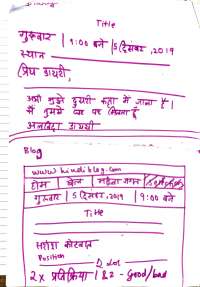 Title
गुरुवार | 9:00 बजे | 5 दिसंबर, 2019
स्थान
प्रिय डायरी,
अभी मुझे दूसरी कक्षा में जाना है।
मैं तुमसे घर पर मिलता हूँ
अलविदा डायरी
Blog
www.hindiblog.com
होम | खेल |
गुरुवार | 5 दिसंबर, 2019 | 9:00 बजे
Title
Position
2 x प्रतिक्रिया 1 & 2 - Good/bad